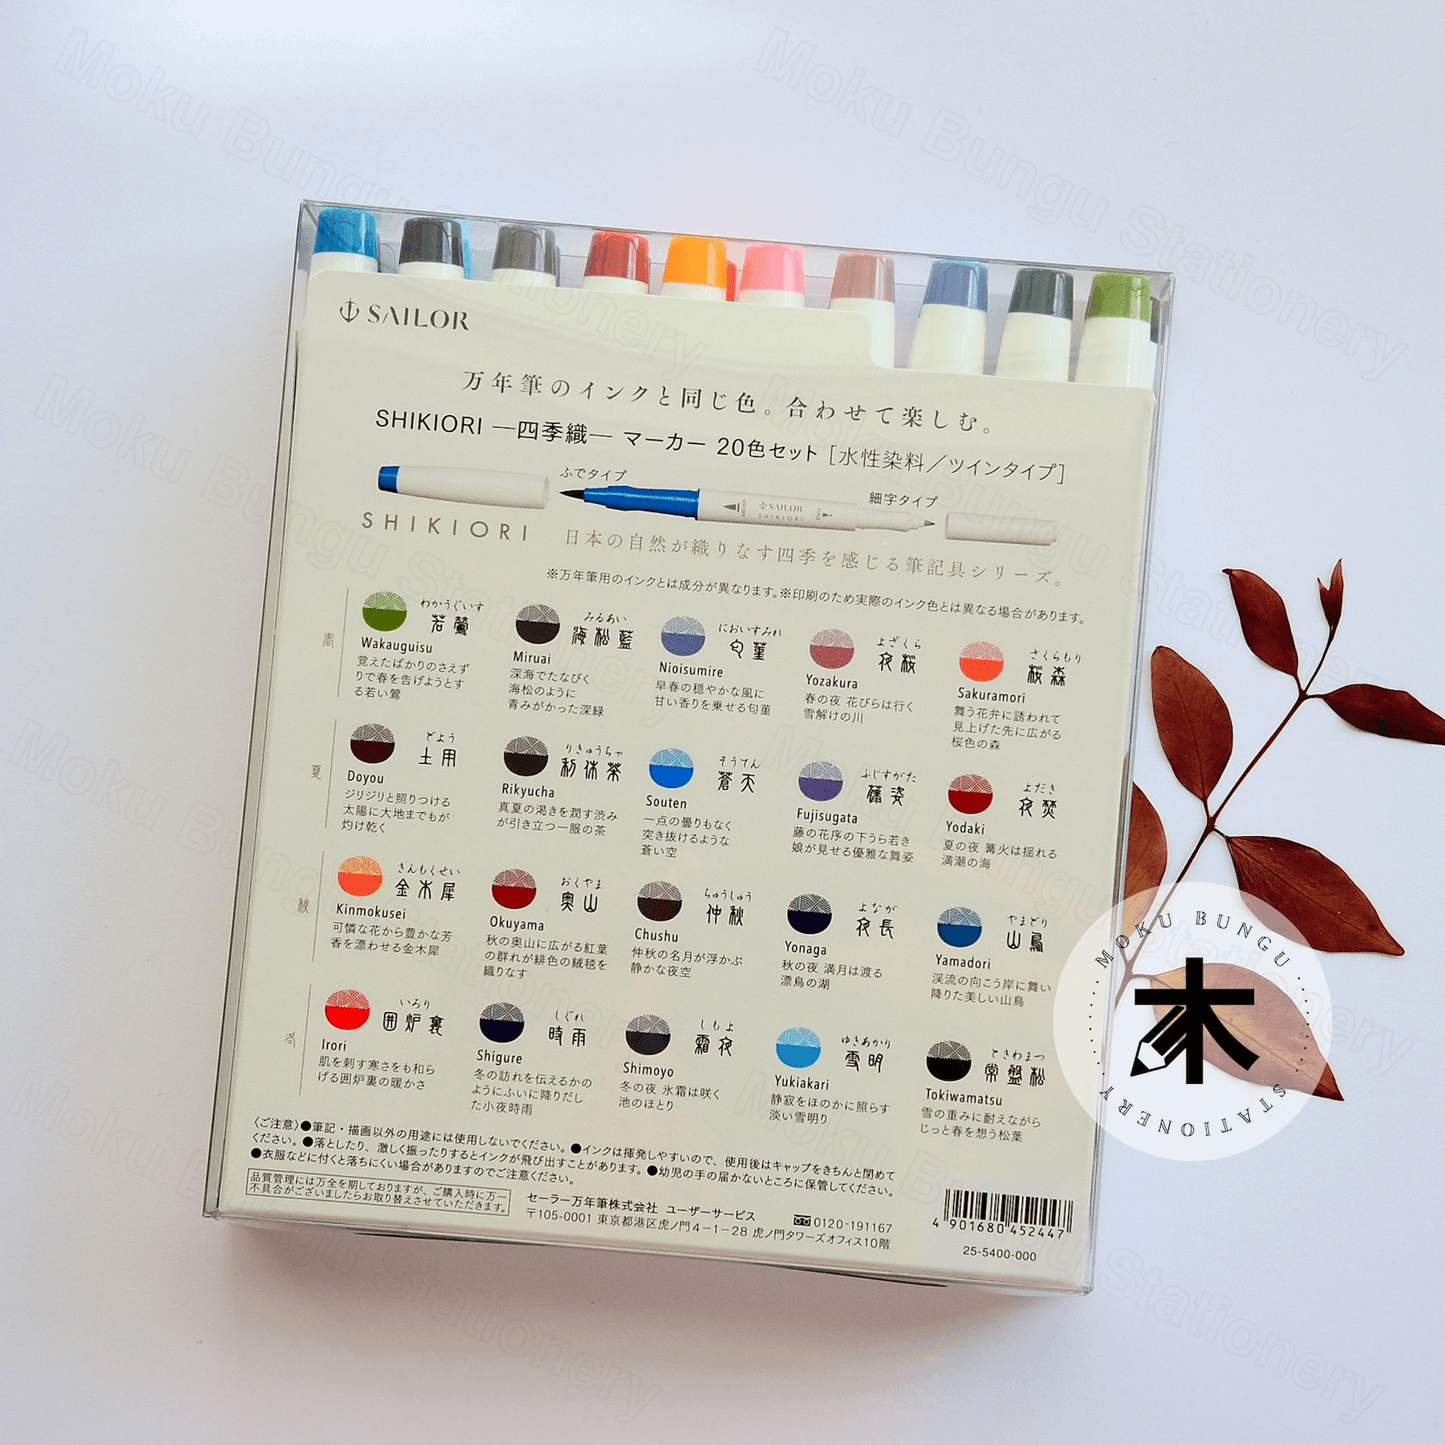 SAILOR
万年筆のインクと同じ色。合わせて楽しむ。
SHIKIORI ―四季織― マーカー 20色セット [水性染料／ツインタイプ]
ふでタイプ
細字タイプ
SAILOR
SHIKIORI
SHIKIORI
日本の自然が織りなす四季を感じる筆記具シリーズ。
※万年筆用のインクとは成分が異なります。※印刷のため実際のインク色とは異なる場合があります。
春
わかうぐいす
若鶯
Wakauguisu
覚えたばかりのさえず
りで春を告げようとす
る若い鶯
みるあい
海松藍
Miruai
深海でたなびく
海松のように
青みがかった深緑
においすみれ
匂菫
Nioisumire
早春の穏やかな風に
甘い香りを乗せる匂菫
よざくら
夜桜
Yozakura
春の夜 花びらは行く
雪解けの川
さくらもり
桜森
Sakuramori
舞う花弁に誘われて
見上げた先に広がる
桜色の森
夏
どよう
土用
Doyou
ジリジリと照りつける
太陽に大地までもが
灼け乾く
りきゅうちゃ
利休茶
Rikyucha
真夏の渇きを潤す渋み
が引き立つ一服の茶
そうてん
蒼天
Souten
一点の曇りもなく
突き抜けるような
蒼い空
ふじすがた
藤姿
Fujisugata
藤の花序の下うら若き
娘が見せる優雅な舞姿
よだき
夜焚
Yodaki
夏の夜 篝火は揺れる
満潮の海
秋
きんもくせい
金木犀
Kinmokusei
可憐な花から豊かな芳
香を漂わせる金木犀
おくやま
奥山
Okuyama
秋の奥山に広がる紅葉
の群れが緋色の絨毯を
織りなす
ちゅうしゅう
仲秋
Chushu
仲秋の名月が浮かぶ
静かな夜空
よなが
夜長
Yonaga
秋の夜 満月は渡る
漂鳥の湖
やまどり
山鳥
Yamadori
渓流の向こう岸に舞い
降りた美しい山鳥
冬
いろり
囲炉裏
Irori
肌を刺す寒さをも和ら
げる囲炉裏の暖かさ
しぐれ
時雨
Shigure
冬の訪れを伝えるかの
ようにふいに降りだし
た小夜時雨
しもよ
霜夜
Shimoyo
冬の夜 氷霜は咲く
池のほとり
ゆきあかり
雪明
Yukiakari
静寂をほのかに照らす
淡い雪明り
ときわまつ
常盤松
Tokiwamatsu
雪の重みに耐えながら
じっと春を想う松葉
〈ご注意〉●筆記・描画以外の用途には使用しないでください。●インクは揮発しやすいので、使用後はキャップをきちんと閉めて
ください。●落としたり、激しく振ったりするとインクが飛び出すことがあります。●幼児の手の届かないところに保管してください。
●衣服などに付くと落ちにくい場合がありますのでご注意ください。
品質管理には万全を期しておりますが、ご購入時に万一
不具合がございましたらお取り替えさせていただきます。
セーラー万年筆株式会社 ユーザーサービス
0120-191167
〒105-0001 東京都港区虎ノ門4-1-28 虎ノ門タワーズオフィス10階
4 901680 452447
25-5400-000
MOKU BUNGU
木
STATIONERY
Moku Bungu Stationery